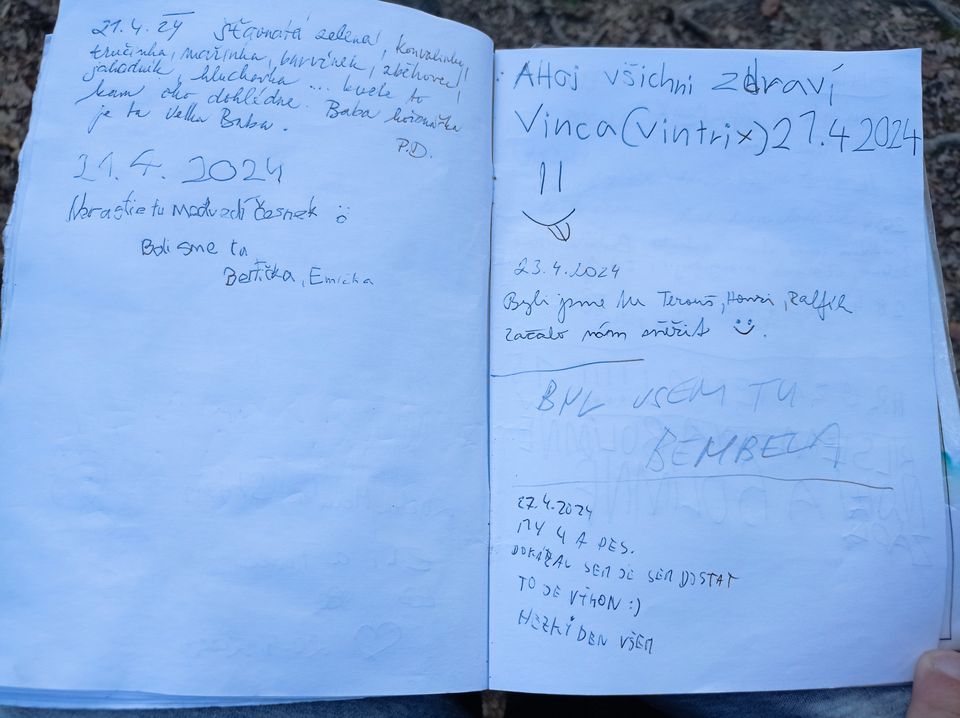 21.4.24 Šťavnatá zelená, konvalinky,
tručinka, mařinka, barvínek, zběhovec,
jahodník, hluchavka ... kvete to
kam oko dohlédne. Baba
je ta Velká Baba.
P.D.
21.4.2024
Narástlo tu Medvědí česnek
Boli sme tu
Bertička, Emička
AHoj všichni zdraví
Vinca (Vintrix) 21.4 2024
23.4.2024
Byli jsme tu Terouš, Honzi, Ralfík
začalo nám sněžit
BYL JSEM TU
BEMBELA
27.4.2024
MY 4 A PES.
DOKÁZAL SEM SE SEM DOSTAT
TO JE VÝKON :)
HEZKÍ DEN VŠEM